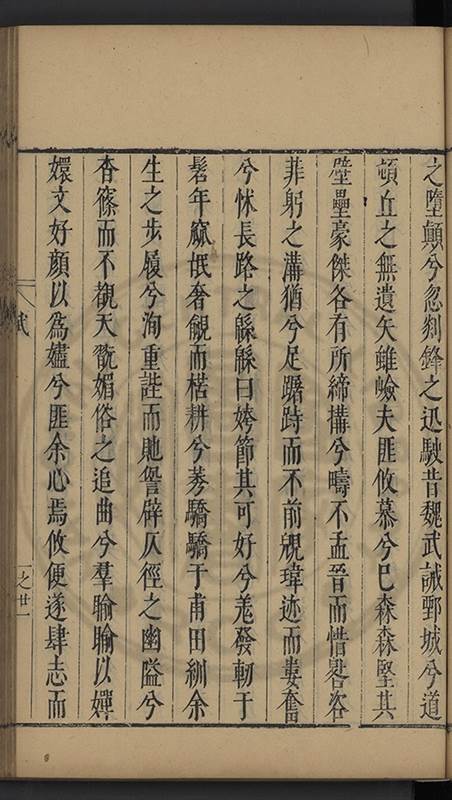 之墮顛兮忽剡鋒之迅駛昔魏武誡鄄城兮道
頓丘之無遺矢雖嶮夫匪攸慕兮已森森堅其
壁壘豪傑各有所締搆兮疇不孟晉而惜晷咨
菲躬之溝猶兮足躑跱而不前覩瑋迹而婁奮
兮怵長路之緜緜曰姱節其可好兮羗發軔于
髫年窳氓奢覦而楛耕兮莠驕驕于甫田紃余
生之步履兮洵重詿而貤諐辟仄徑之幽隘兮
杳篠而不覩天翫媚俗之追曲兮羣腧腧以嬋
嬛文好顏以為嫿兮匪余心焉攸便遂肆志而
賦
之廿一